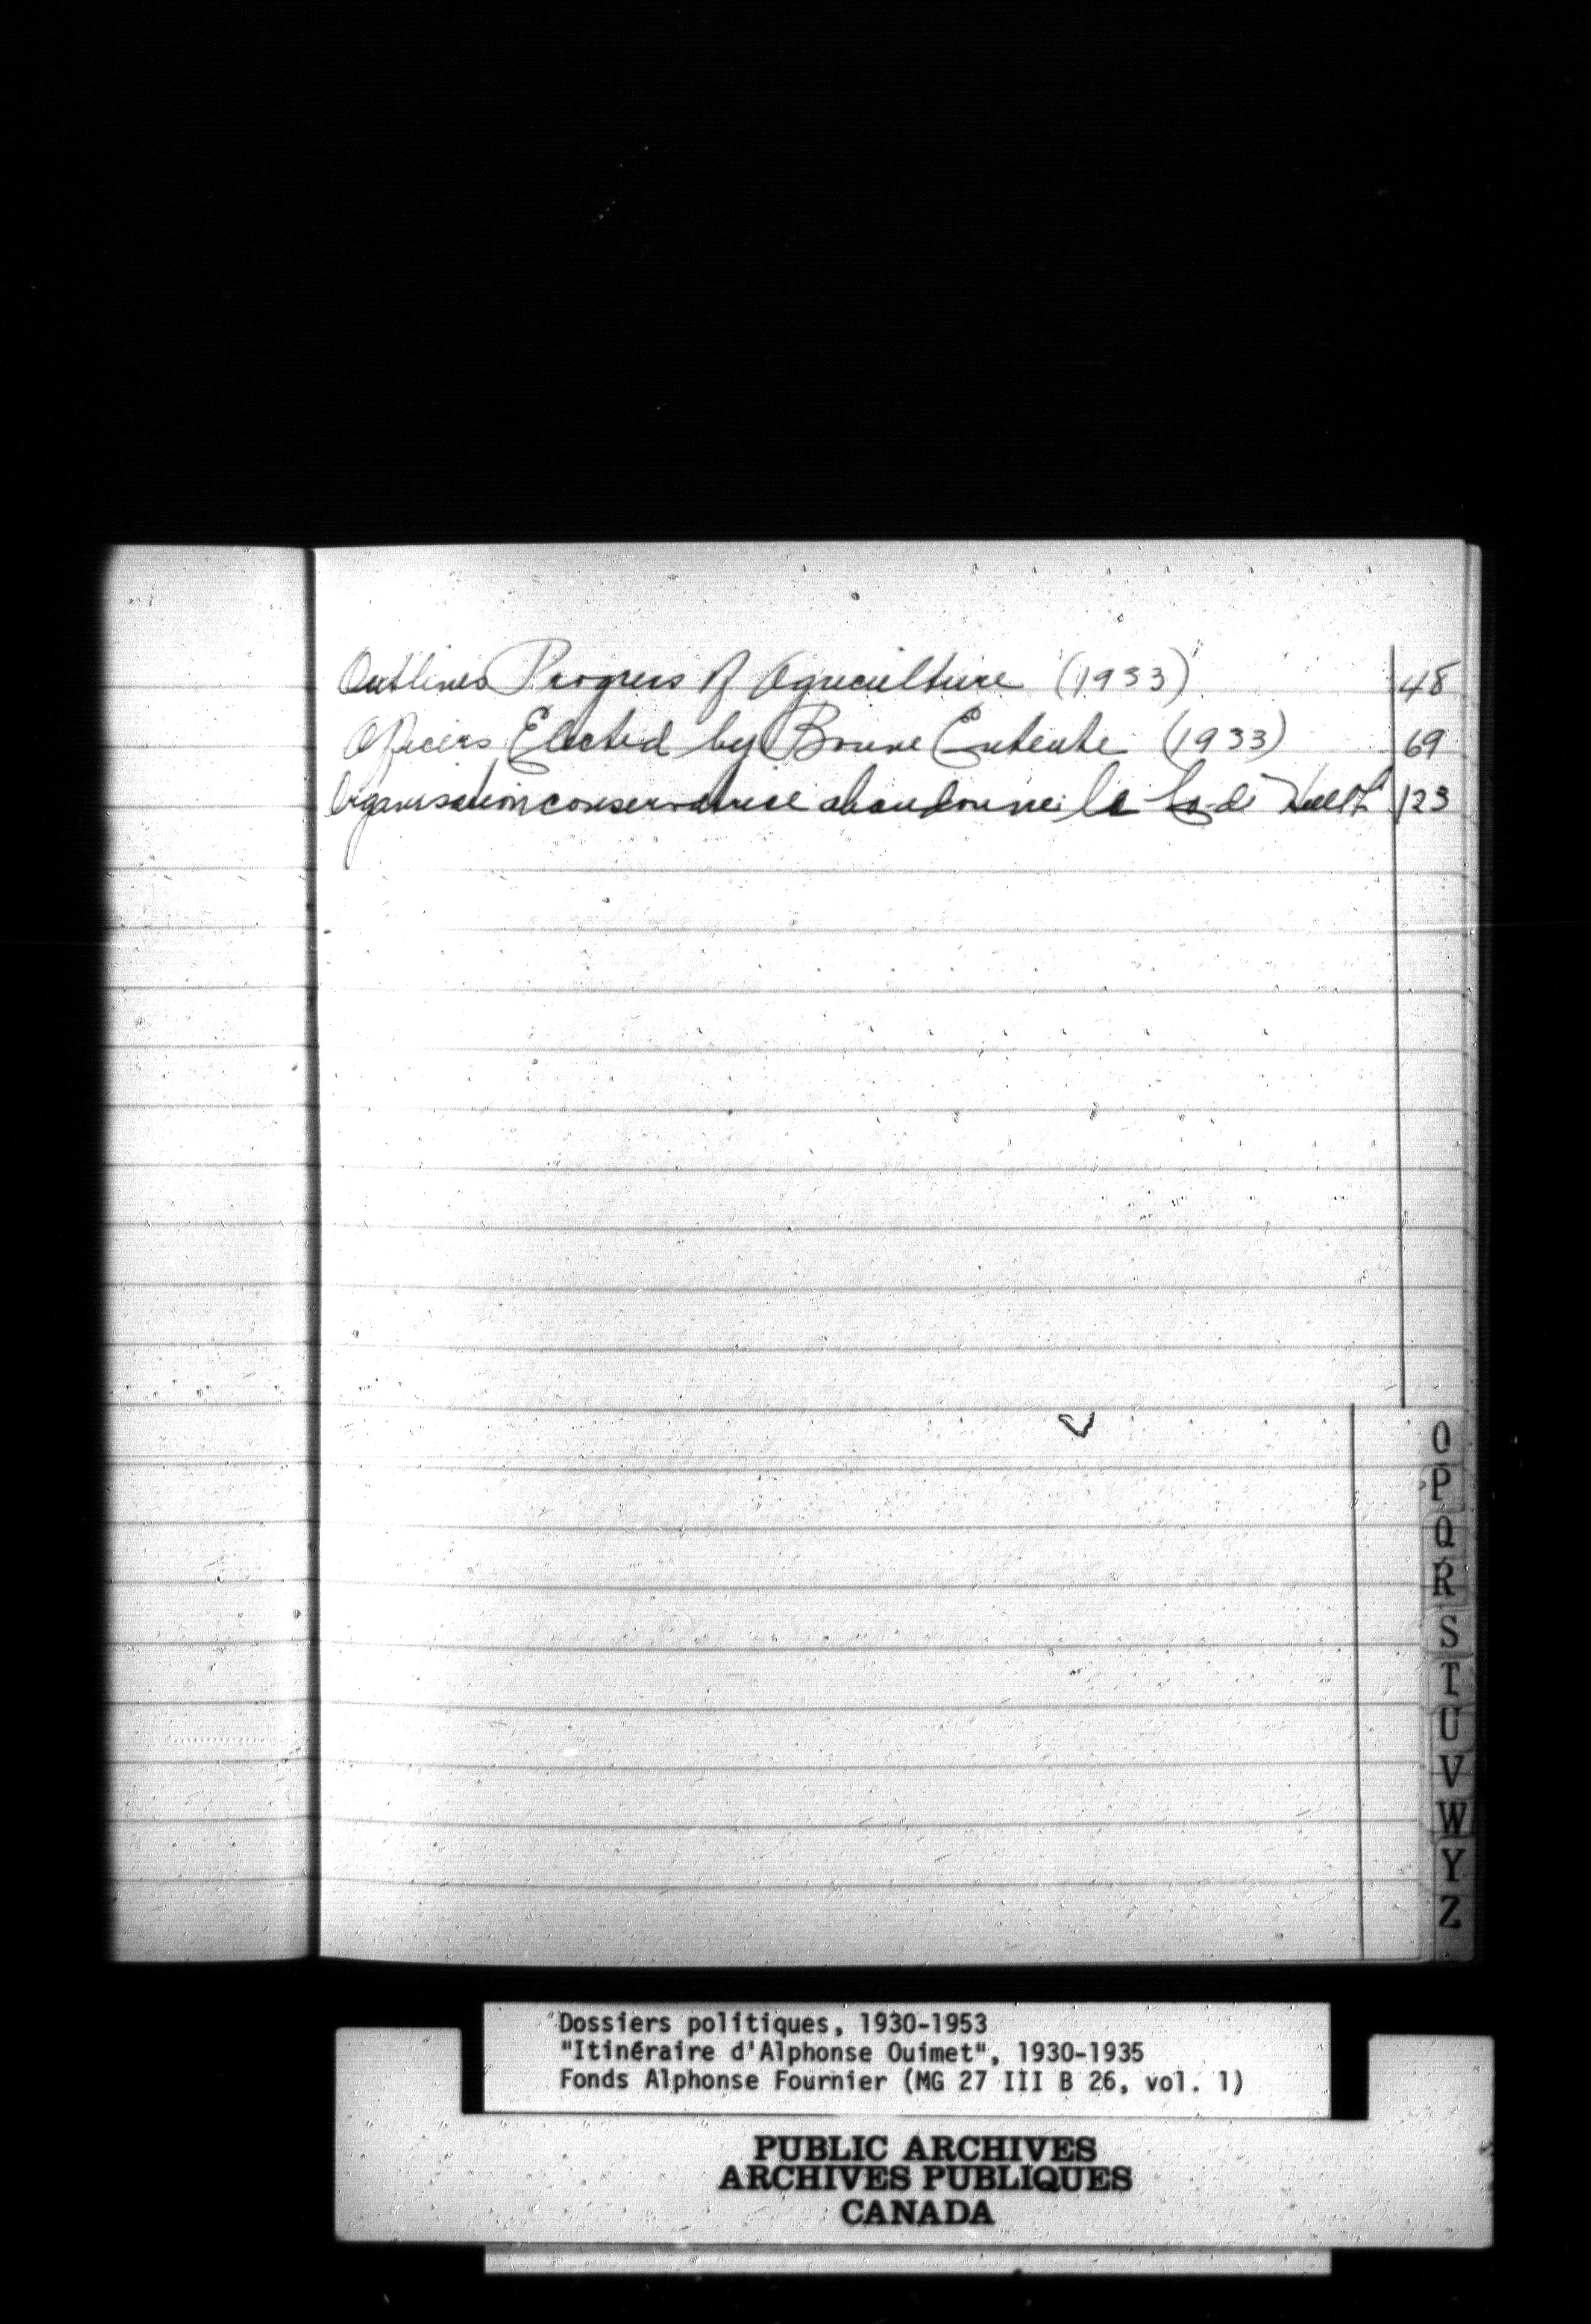 Outlines Progress of Agriculture (1933) 48
Officers Elected by Bonne Entente (1933) 69
Organisation conservatrice abandonne le Co. de Hull 123
O
P
Q
R
S
T
U
V
W
Y
Z
Dossiers politiques, 1930-1953
"Itinéraire d'Alphonse Ouimet", 1930-1935
Fonds Alphonse Fournier (MG 27 III B 26, vol. 1)
PUBLIC ARCHIVES
ARCHIVES PUBLIQUES
CANADA